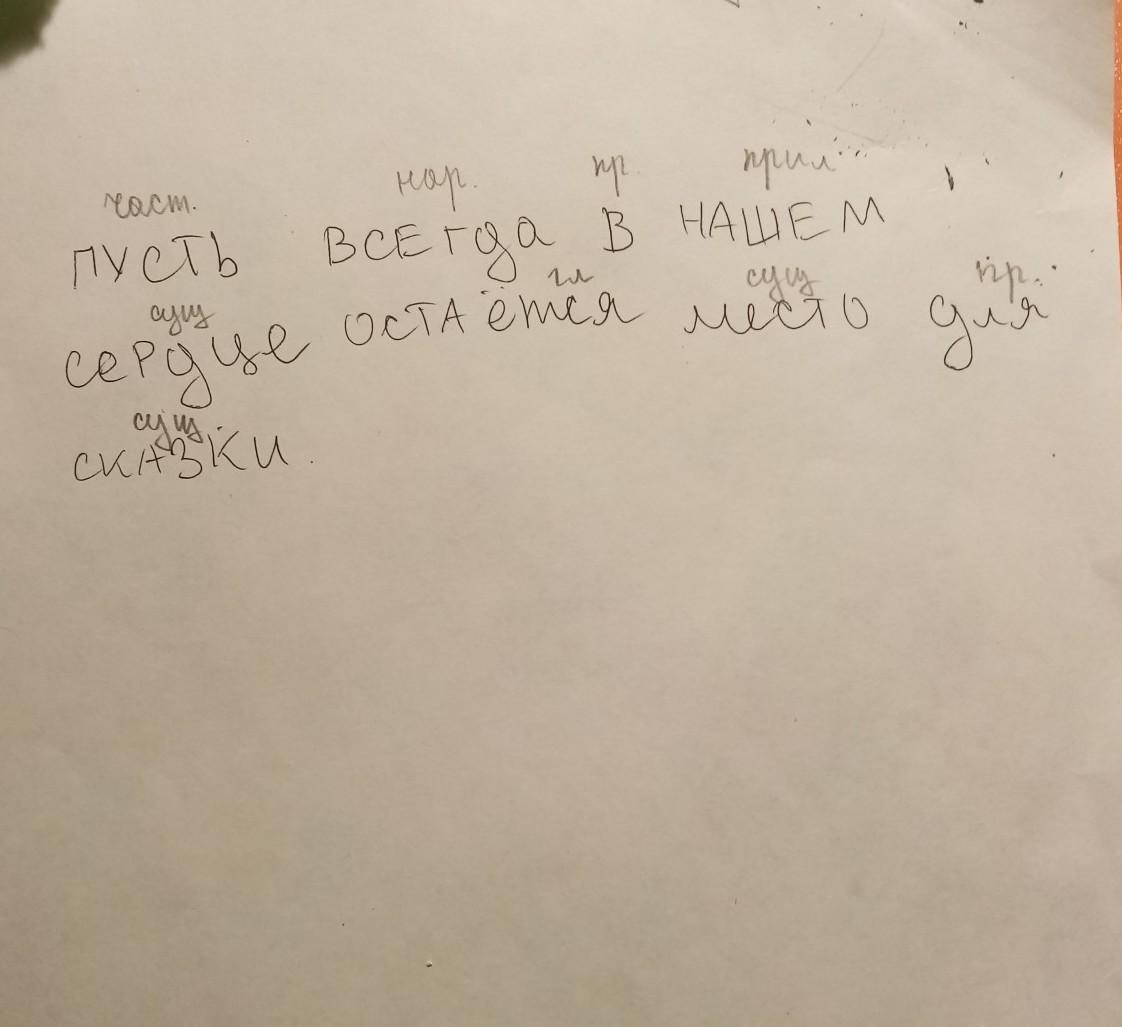 част. нар. пр. прил
ПУСТЬ ВСЕГДА В НАШЕМ
сущ гл сущ пр.
СЕРДЦЕ ОСТАЁТСЯ МЕСТО ДЛЯ
сущ.
СКАЗКИ.